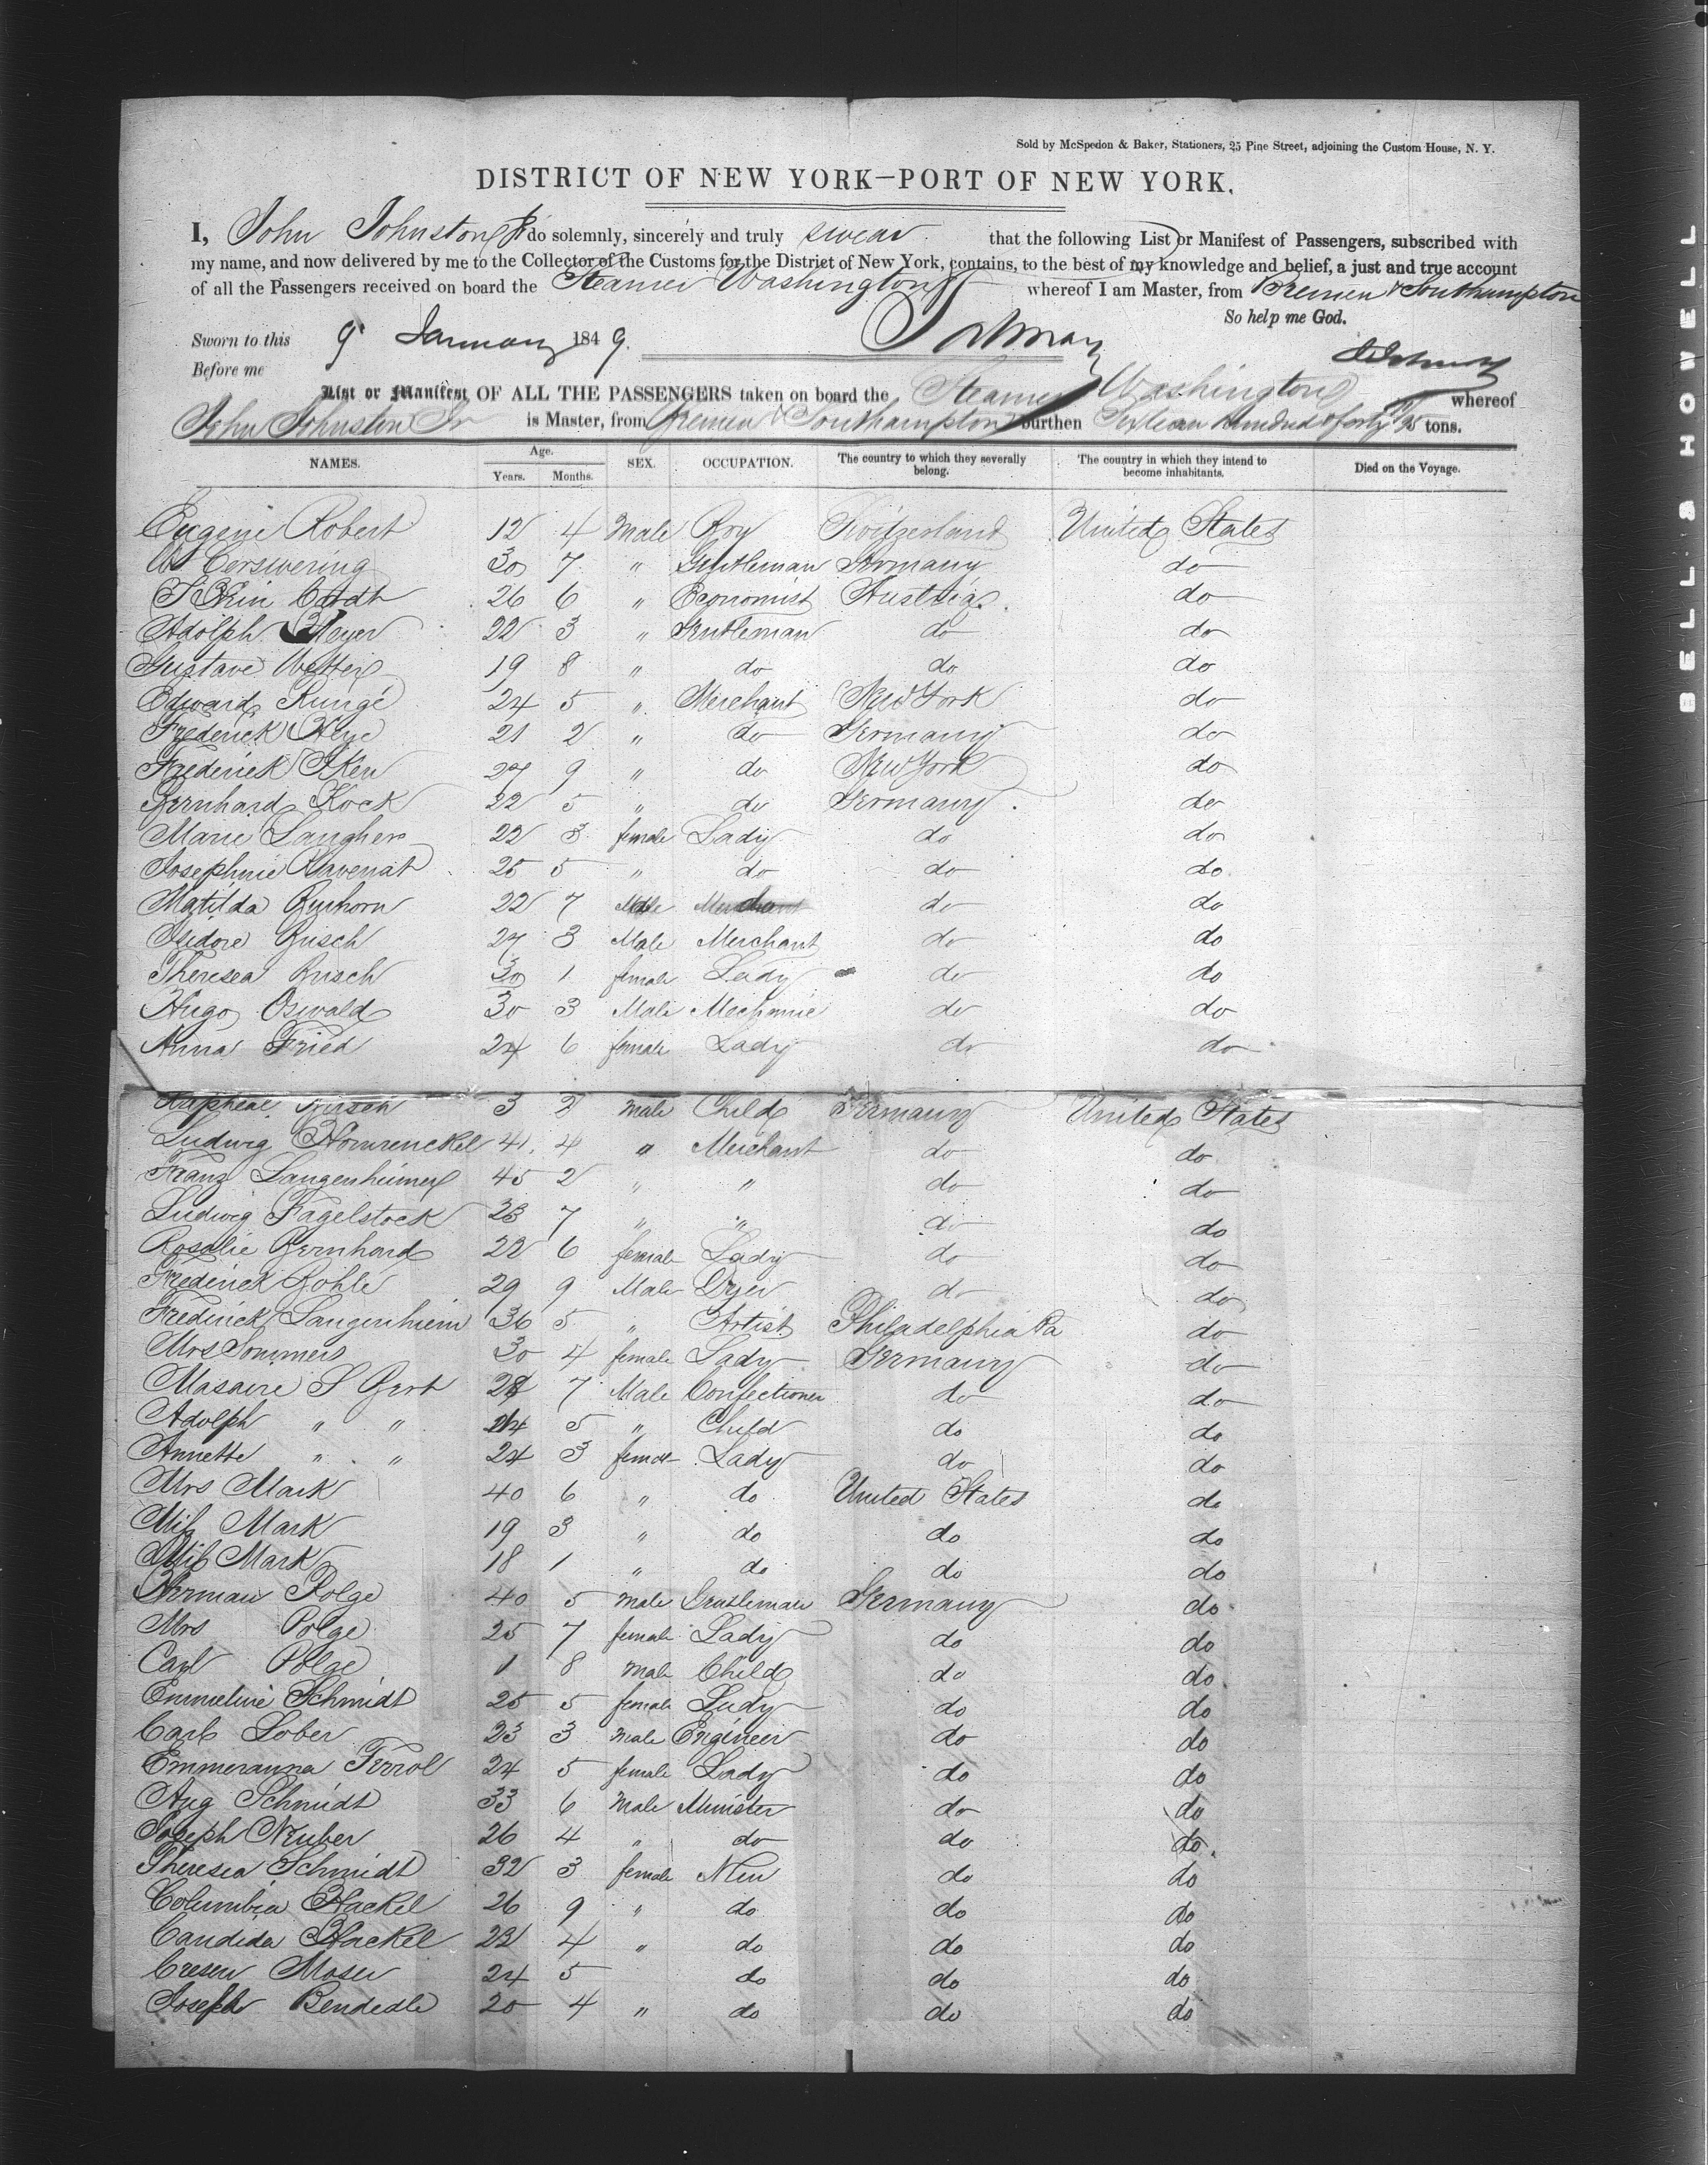 Sold by McSpedon & Baker, Stationers, 25 Pine Street, adjoining the Custom House, N. Y.
DISTRICT OF NEW YORK—PORT OF NEW YORK.
I, John Johnston Jr do solemnly, sincerely and truly swear that the following List or Manifest of Passengers, subscribed with
my name, and now delivered by me to the Collector of the Customs for the District of New York, contains, to the best of my knowledge and belief, a just and true account
of all the Passengers received on board the Steamer Washington whereof I am Master, from Bremen & Southampton
So help me God.
Sworn to this 9 January 1849.
Before me
List or Manifest OF ALL THE PASSENGERS taken on board the Steamer Washington whereof
John Johnston Jr is Master, from Bremen & Southampton burthen Sixteen Hundred & forty /95 tons.
NAMES. Age. Years. Months. SEX. OCCUPATION. The country to which they severally belong. The country in which they intend to become inhabitants. Died on the Voyage.
Eugene Robert 12 4 Male Boy Switzerland United States
30 7 " Gentleman Germany do
26 6 " Economist Austria do
Adolph Meyer 22 3 " Gentleman do do
Gustave 19 8 " do do do
Edward Runge 24 5 " Merchant New York do
Frederick Heye 21 2 " do Germany do
Frederick 27 9 " do New York do
Bernhard Kock 22 5 " do Germany do
Marie 22 3 female Lady do do
Josephine Ravenat 25 5 " do do do
Matilda Buxhorn 22 7 do do
Isidore Busch 27 3 Male Merchant do do
Theresea Busch 30 1 female Lady do do
Hugo Oswald 30 3 Male Mechanic do do
Anna Fried 24 6 female Lady do do
Raphael Busch 3 2 Male Child Germany United States
Ludwig 41 4 " Merchant do do
Franz Langenheimer 45 2 " " do do
Ludwig Fagelstock 23 7 " " do do
Rosalie Bernhard 22 6 female Lady do do
Frederick Bohle 29 9 Male Dyer do do
Frederick Langenheim 36 5 " Artist Philadelphia Pa do
Mrs Sommers 30 4 female Lady Germany do
28 7 Male Confectioner do do
Adolph " " 5 " Child do do
Annette " " 24 3 female Lady do do
Mrs Mark 40 6 " do United States do
Miss Mark 19 3 " do do do
Miss Mark 18 1 " do do do
Herman Polge 40 5 Male Gentleman Germany do
Mrs Polge 25 7 female Lady do do
Carl Polge 1 8 Male Child do do
Emmeline Schmidt 25 5 female Lady do do
Carl Lober 23 3 Male Engineer do do
Emmeranna Ferrol 24 5 female Lady do do
Aug Schmidt 33 6 Male Minister do do
Joseph Neuber 26 4 " do do do
Theresea Schmidt 32 3 female Nun do do
Columbia Hackel 26 9 " do do do
Candida Hackel 22 4 " do do do
Cresen Moser 24 5 do do do
Joseph Bendedle 20 4 " do do do
BELL & HOWELL